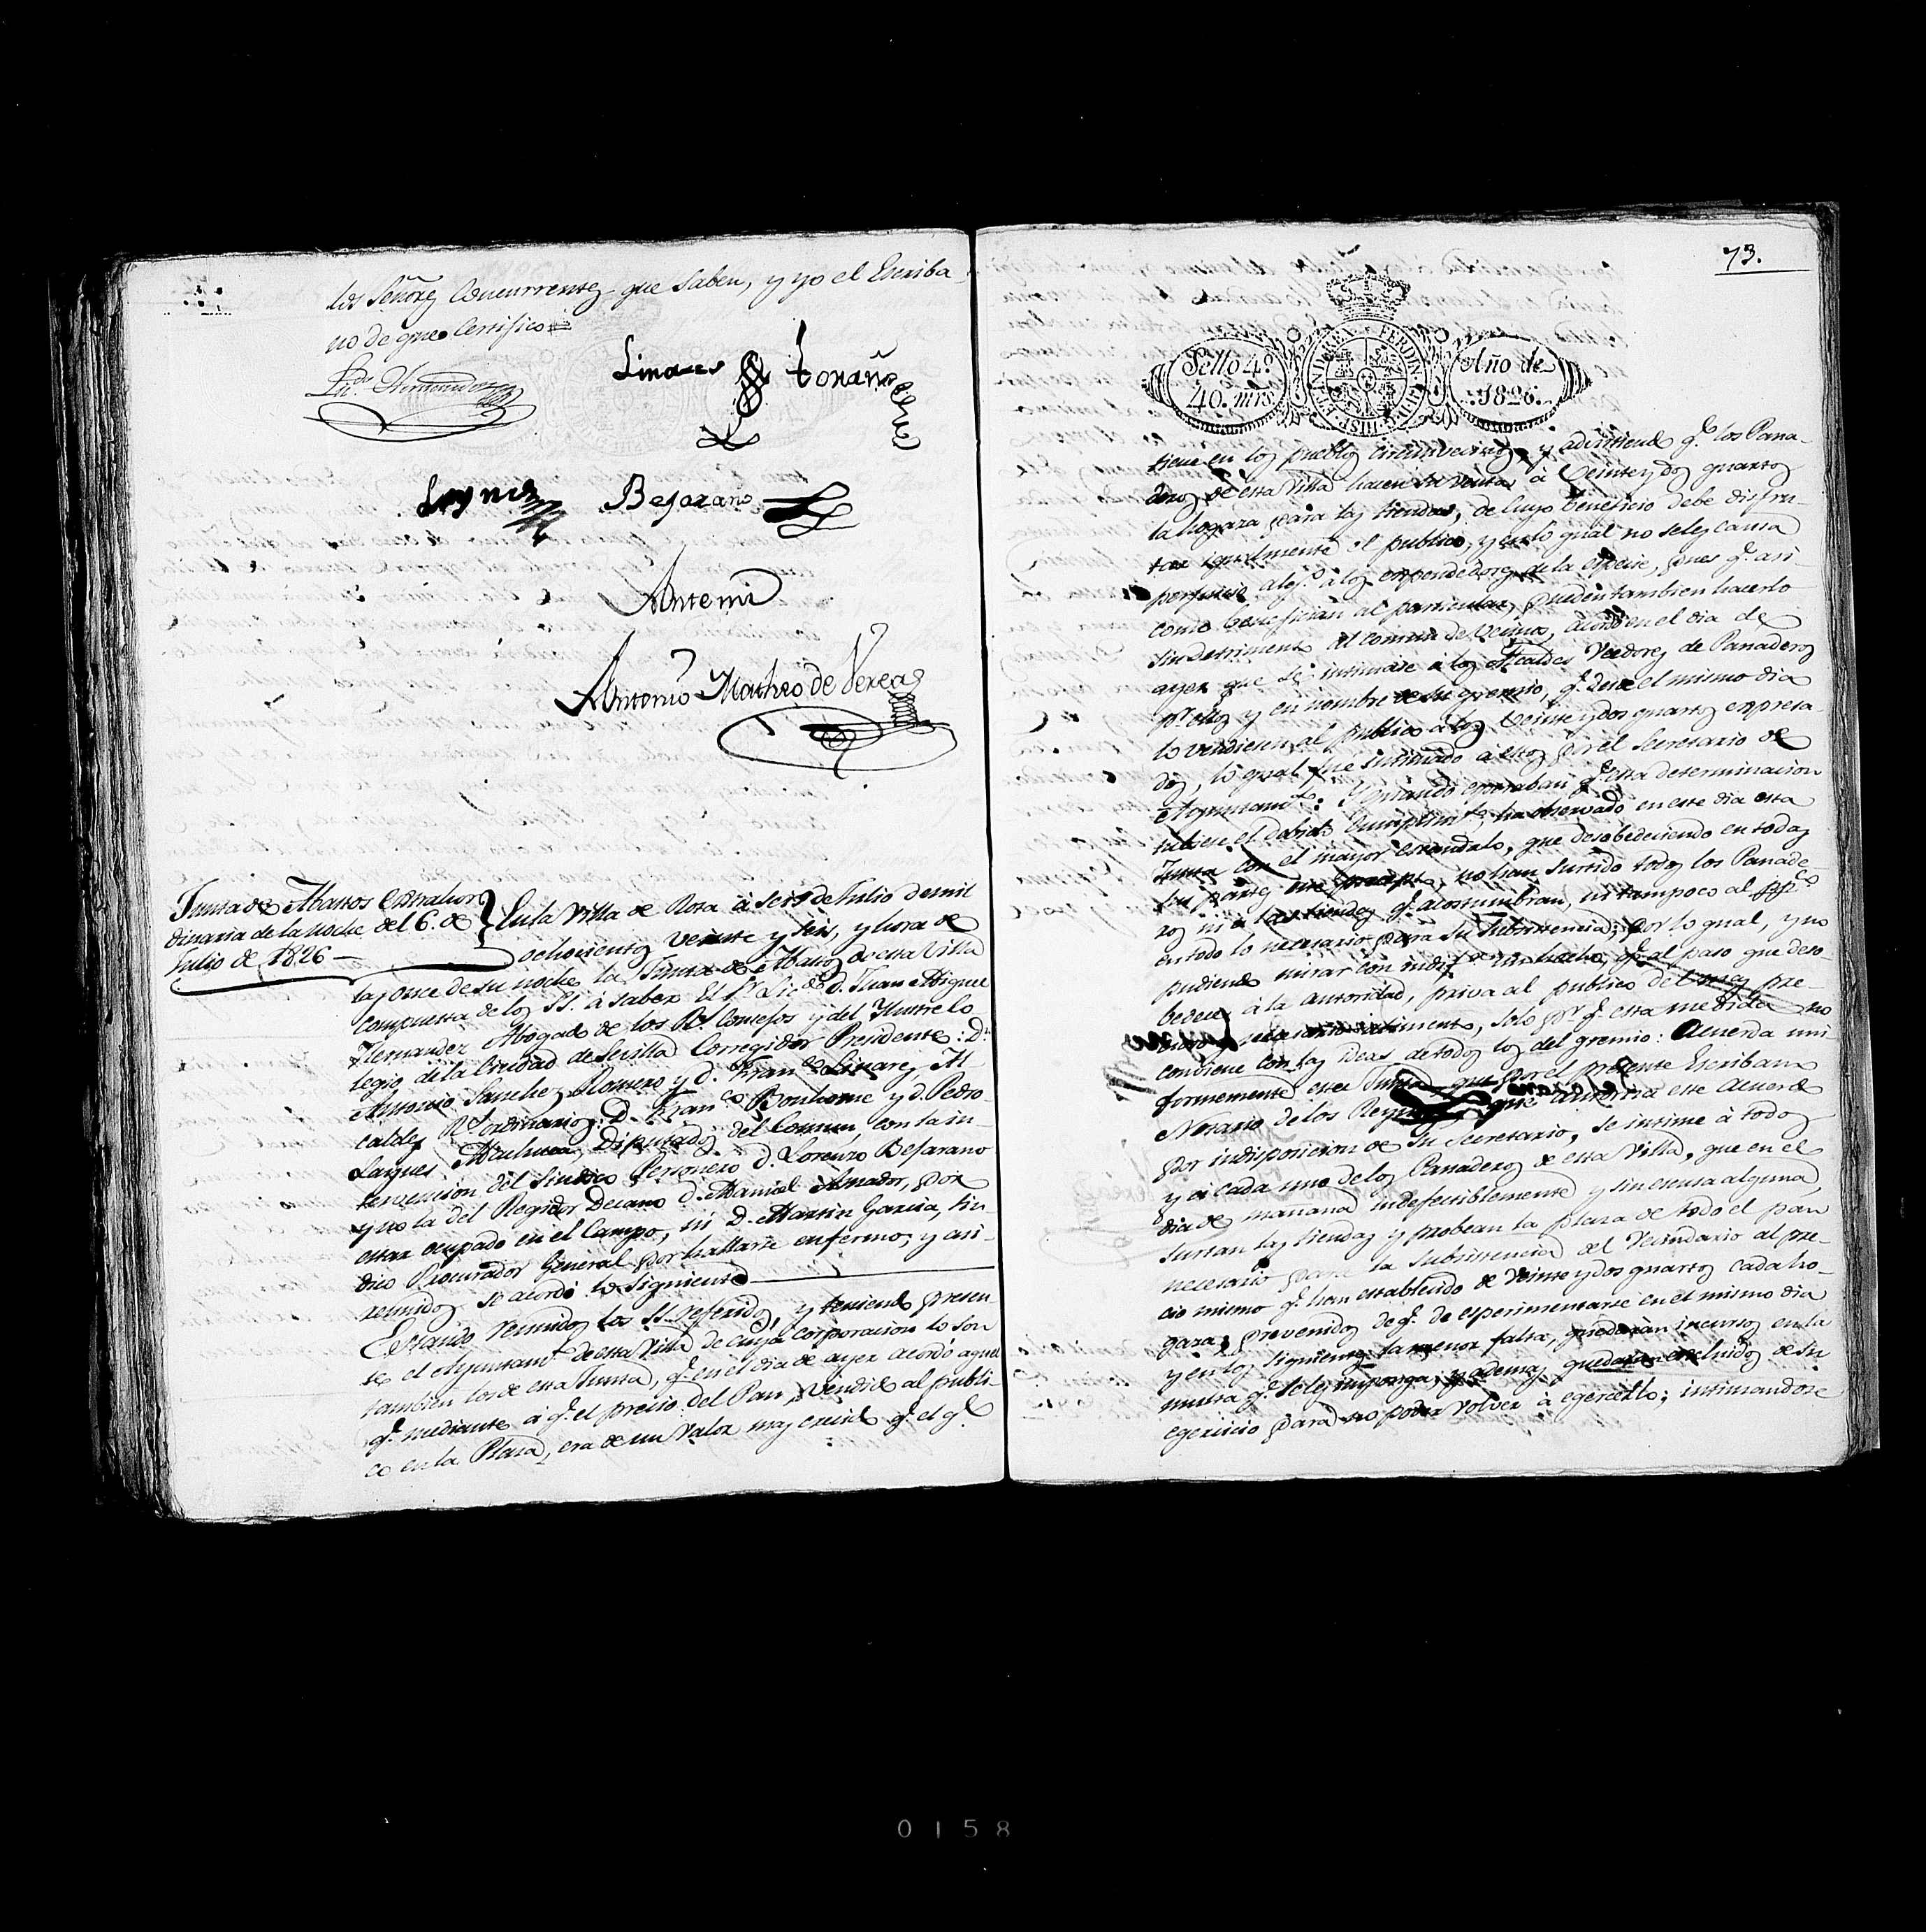 los Señores Concurrentes que saben, y yo el Escriba-
no de que Certifico=
Licdo. Hernandez
Linares
Bejarano
Antemi
Antonio Matheo de Verea
Junta de Abastos Extrahor
dinaria de la noche del 6. de
Julio de 1826
En la Villa de Rota à seis de Julio de mil
ochocientos veinte y seis, y hora de
las once de su noche la Junta de Abastos de esta Villa
compuesta de los SS. à saber El Sr. Licdo. D. Juan Miguel
Hernandez Abogado de los Rs. Consejos y del Ilustre Co-
legio de la Ciudad de Sevilla Corregidor Presidente: Dn.
Antonio Sanchez Romero y D. Franco. Linares, Al-
caldes Ordinarios: D. Franco. Bonhome y D. Pedro
Laynes Diputados del Comun, con la in-
tervencion del Sindico Personero D. Lorenzo Bejarano
y no la del Regidor Decano D. Manuel Amador, por
estar ocupado en el Campo, ni D. Martin Garcia, Sin-
dico Procurador General por hallarse enfermo; y asi
reunidos se acordó lo siguiente
Estando reunidos los SS. referidos, y teniendo presen
te el Ayuntamto. de esta Villa de cuya corporacion lo son
tambien los de esta Junta, qe. en el dia de ayer acordó aquel
qe. mediante à qe. el precio del Pan vendido al publi-
co en la Plaza, era de un valor mas crecido qe. el qe.
73.
Sello 4º.
40. mrs.
Año de
1826.
tiene en los pueblos circunvecinos, y advirtiendo qe. los Pana-
deros de esta Villa hacen su venta à Veinte y dos quartos
la hogaza para las tiendas, de cuyo beneficio debe disfru-
tar igualmente el publico, y en lo qual no seles causa
perjuicio algo. à los expendedores de la especie, pues qe. asi
como benefician al particular, pueden tambien hacerlo
sin detrimento al comun de Vecinos, acordó en el dia de
ayer que se intimase à los Alcaldes Veedores de Panaderos
pr. ellos y en nombre de su gremio, qe. desde el mismo dia
lo vendiesen al publico à los Veinte y dos quartos expresa-
dos, lo qual fue intimado à estos por el Secretario de
Ayuntamto.: Y quando esperaban qe. esta determinacion
tubiese el debido cumplimto. ha observado en este dia esta
Junta con el mayor escandalo, que desobedeciendo en todas
sus partes este precepto, no han surtido todos los Panade-
ros ni à las tiendas qe. acostumbran, ni tampoco al ppco.
en todo lo necesario para su subsistencia; por lo qual, y no
pudiendo mirar con indifa. un hecho, qe. al paso que deso-
bedece à la autoridad, priva al publico del mas pre-
ciso y necesario alimento, solo pr. qe. esta medida no
conviene con las ideas de todos los del gremio: Acuerda uni
formemente esta Junta que por el presente Escribano
Notario de los Reynos que autoriza este Acuerdo
por indisposicion de su Secretario, se intime à todos
y à cada uno de los Panaderos de esta Villa, que en el
dia de mañana indefectiblemente y sin escusa alguna,
surtan las tiendas y probean la plaza de todo el pan
necesario para la subsistencia del Vecindario al pre-
cio mismo qe. han establecido de Veinte y dos quartos cada ho-
gaza; prevenidos de qe. de esperimentarse en el mismo dia
y en los siguientes la menor falta, quedarán incursos en la
multa qe. seles imponga; y ademas quedarán excluidos de su
egercicio para no poder volver à egercerlo; intimandose
0158